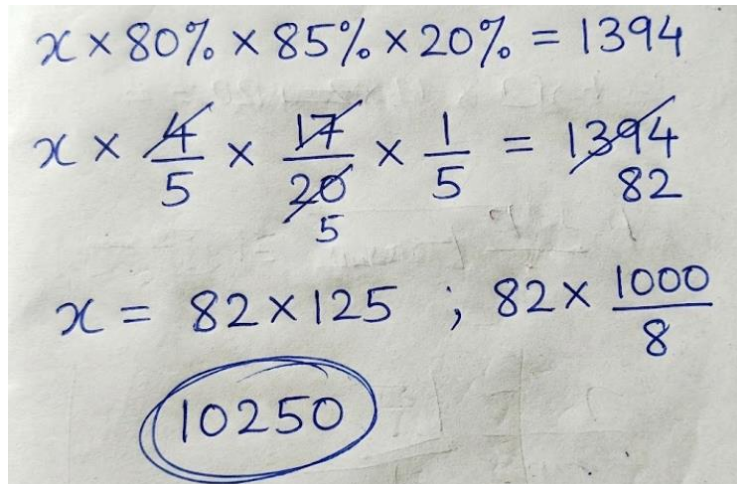 x × 80% × 85% × 20% = 1394
x × 4/5 × 17/20 × 1/5 = 1394
5 82
x = 82 × 125 ; 82 × 1000/8
10250